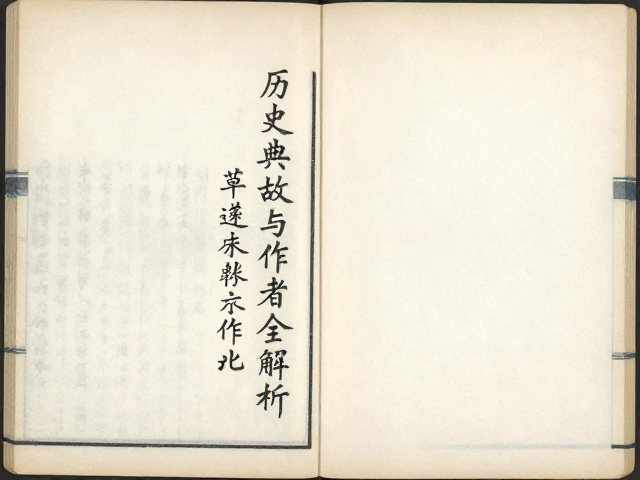 历史典故与作者全解析
草遂未㪚示作北